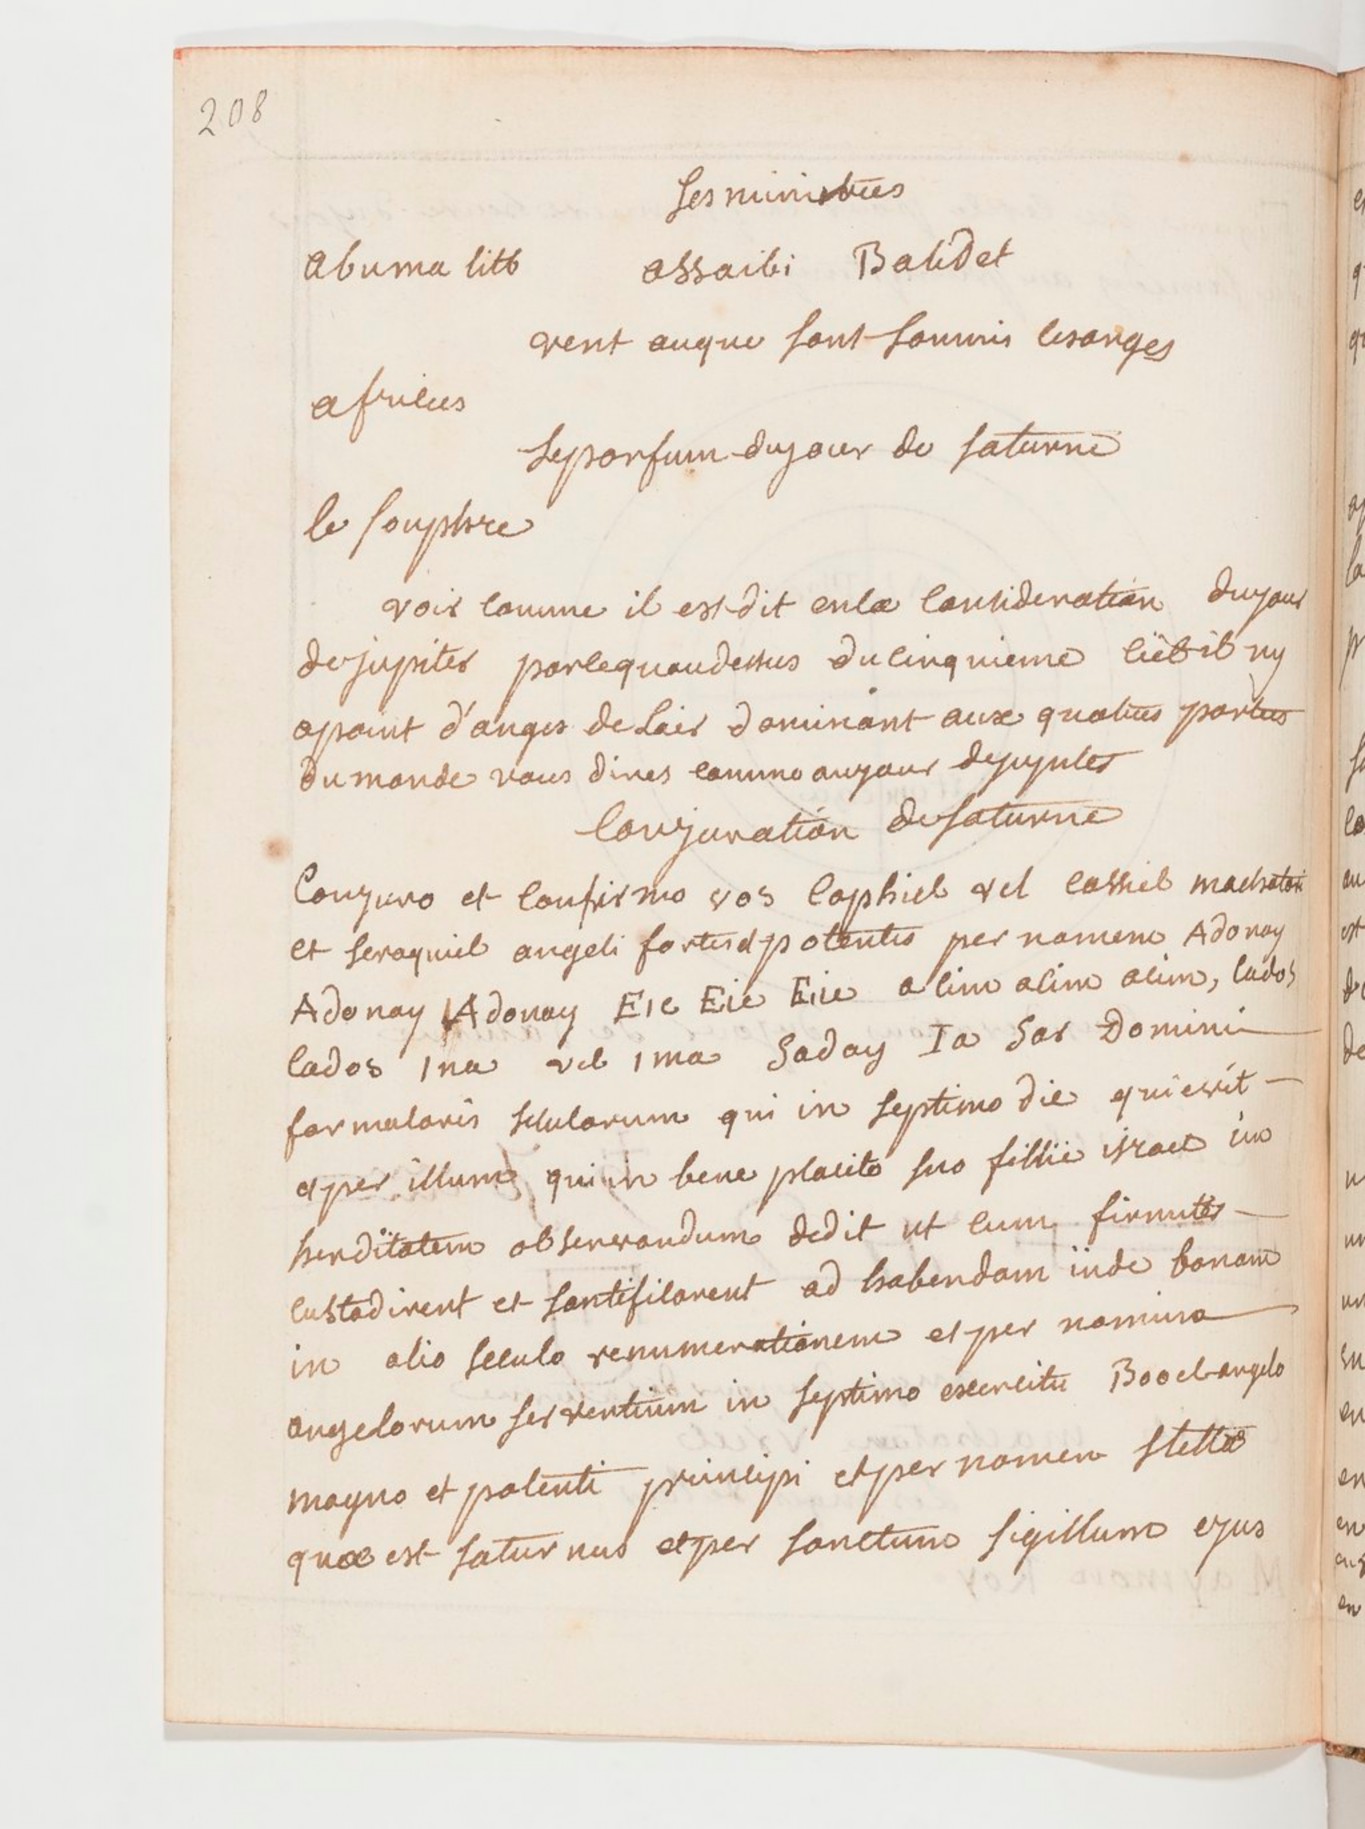 208
Ses ministres
abuma lith assaibi Balidet
vent auque sont soumis les anges
africus
Le parfum du jour de saturne
le souphre
voir comme il est dit en la Consideration du jour
de jupiter parle quau dessus du cinquieme Ciel il ny
a point d'anges de Lair dominant aux quatres parties
du monde vous dires comme au jour de jupiter
Conjuration de saturne
Conjuro et Confirmo vos Caphiel vel cassiel machatori
et seraquiel angeli fortes et potentes per nomen Adonay
Adonay Adonay Eie Eie Eie acim acim acim, Cados
Cados Ina vel ima Saday Ia Sar Domini
formatoris seculorum qui in septimo die quievit
et per illum qui in bene placito suo filiie israel in
herditatem observandum dedit ut eum firmiter
custodirent et santificarent ad habendam iinde bonam
in alio seculo renumerationem et per nomina
angelorum servientium in septimo exercitu Booel angelo
magno et potenti principi et per nomen stellæ
quæ est saturnus et per sanctum sigillum ejus